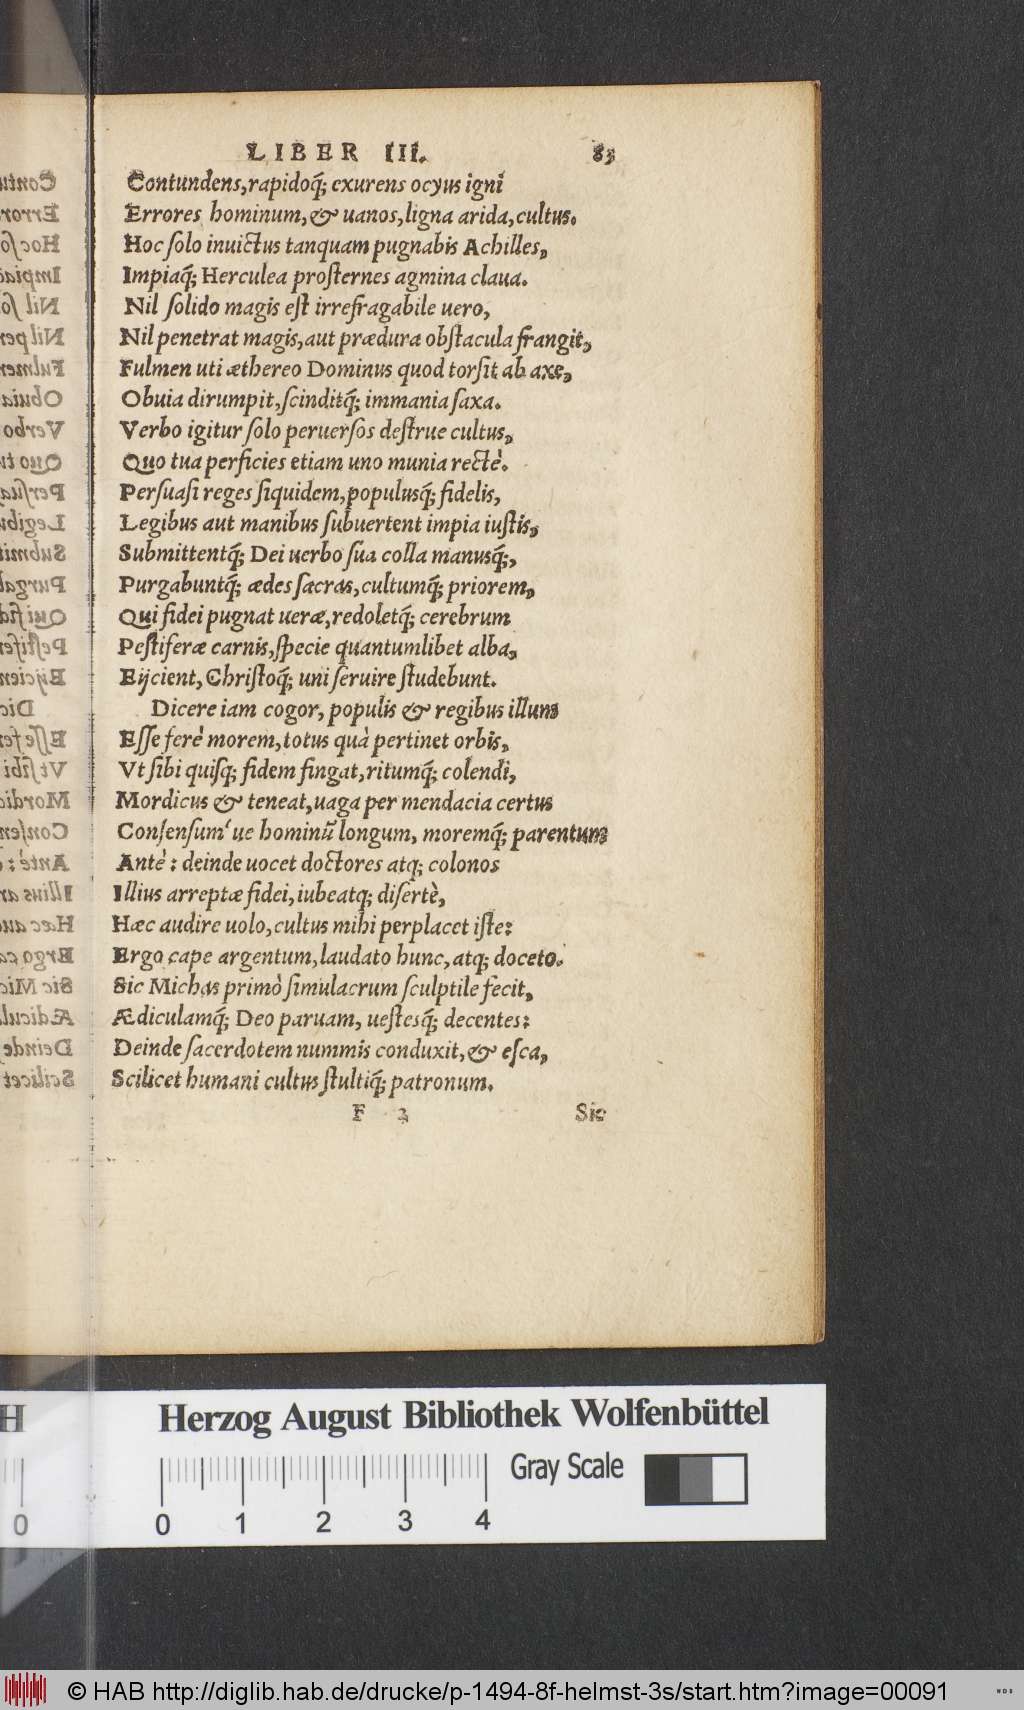 LIBER III. 83
Contundens, rapidoq́; exurens ocyus igni
Errores hominum, & uanos, ligna arida, cultus.
Hoc ſolo inuictus tanquam pugnabis Achilles,
Impiaq́; Herculea proſternes agmina claua.
Nil ſolido magis eſt irrefragabile uero,
Nil penetrat magis, aut prædura obſtacula frangit,
Fulmen uti æthereo Dominus quod torſit ab axe,
Obuia dirumpit, ſcinditq́; immania ſaxa.
Verbo igitur ſolo peruerſos deſtrue cultus,
Quo tua perficies etiam uno munia rectè.
Perſuaſi reges ſiquidem, populusq́; fidelis,
Legibus aut manibus ſubuertent impia iuſtis,
Submittentq́; Dei uerbo ſua colla manusq́;,
Purgabuntq́; ædes ſacras, cultumq́; priorem,
Qui fidei pugnat ueræ, redoletq́; cerebrum
Peſtiferæ carnis, ſpecie quantumlibet alba,
Eijcient, Chriſtoq́; uni ſeruire ſtudebunt.
Dicere iam cogor, populis & regibus illum
Eſſe ferè morem, totus quà pertinet orbis,
Vt ſibi quiſq; fidem fingat, ritumq́; colendi,
Mordicus & teneat, uaga per mendacia certus
Conſenſum'ue hominũ longum, moremq́; parentum
Antè: deinde uocet doctores atq; colonos
Illius arreptæ fidei, iubeatq; diſertè,
Hæc audire uolo, cultus mihi perplacet iſte:
Ergo cape argentum, laudato hunc, atq; doceto.
Sic Michas primò ſimulacrum ſculptile fecit,
Ædiculamq́; Deo paruam, ueſtesq́; decentes:
Deinde ſacerdotem nummis conduxit, & eſca,
Scilicet humani cultus ſtultiq́; patronum.
F 3 Sic
H Herzog August Bibliothek Wolfenbüttel
Gray Scale
0 0 1 2 3 4
© HAB http://diglib.hab.de/drucke/p-1494-8f-helmst-3s/start.htm?image=00091